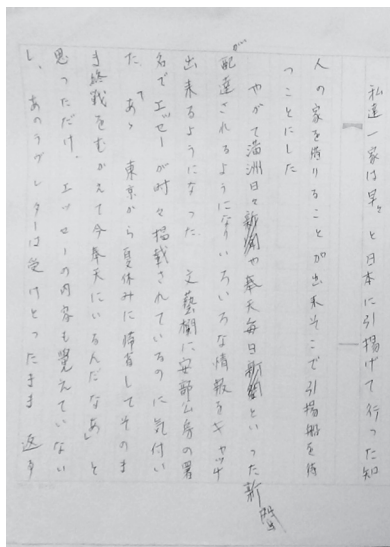 私達一家は早々と日本に引揚げて行った知
人の家を借りることが出来そこで引揚船を待
つことにした
やがて満洲日々新聞や奉天毎日新聞といった新聞
が配達されるようになりいろいろな情報をキャッチ
出来るようになった 文藝欄に安部公房の署
名でエッセーが時々掲載されているのに気付い
た あゝ東京から夏休みに帰省してそのま
ま終戦をむかえて今奉天にいるんだなあ」と
思っただけ、エッセーの内容も覚えていない
し、あのラブレターは受けとったまま 返す